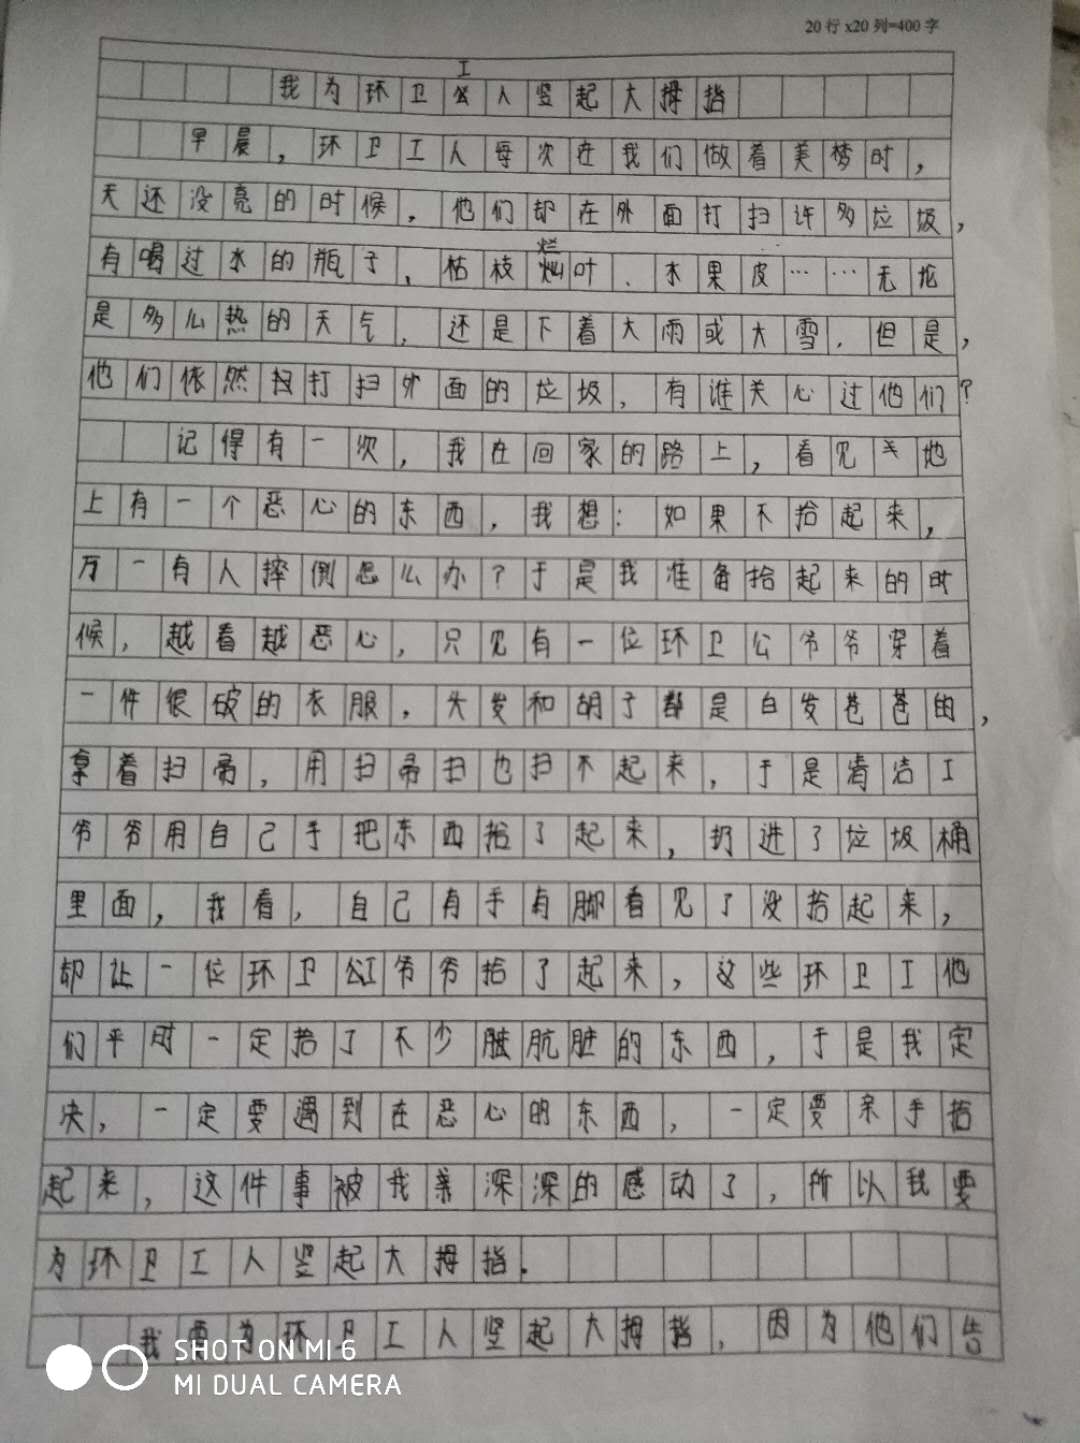 20行x20列=400字
工
我为环卫公人竖起大拇指
早晨，环卫工人每次在我们做着美梦时，
天还没亮的时候，他们却在外面打扫许多垃圾，
烂
有喝过水的瓶子、枯枝灿叶、水果皮……无论
是多么热的天气，还是下着大雨或大雪，但是，
他们依然扫打扫外面的垃圾，有谁关心过他们？
记得有一次，我在回家的路上，看见地
上有一个恶心的东西，我想：如果不拾起来，
万一有人摔倒怎么办？于是我准备拾起来的时
候，越看越恶心，只见有一位环卫公爷爷穿着
一件很破的衣服，头发和胡子都是白发苍苍的，
拿着扫帚，用扫帚扫也扫不起来，于是清洁工
爷爷用自己手把东西拾了起来，扔进了垃圾桶
里面，我看，自己有手有脚看见了没拾起来，
却让一位环卫公工爷爷拾了起来，这些环卫工他
们平时一定拾了不少脏肮脏的东西，于是我定
决，一定要遇到在恶心的东西，一定要亲手拾
起来，这件事被我亲深深的感动了，所以我要
为环卫工人竖起大拇指。
我要为环卫工人竖起大拇指，因为他们告
SHOT ON MI 6
MI DUAL CAMERA